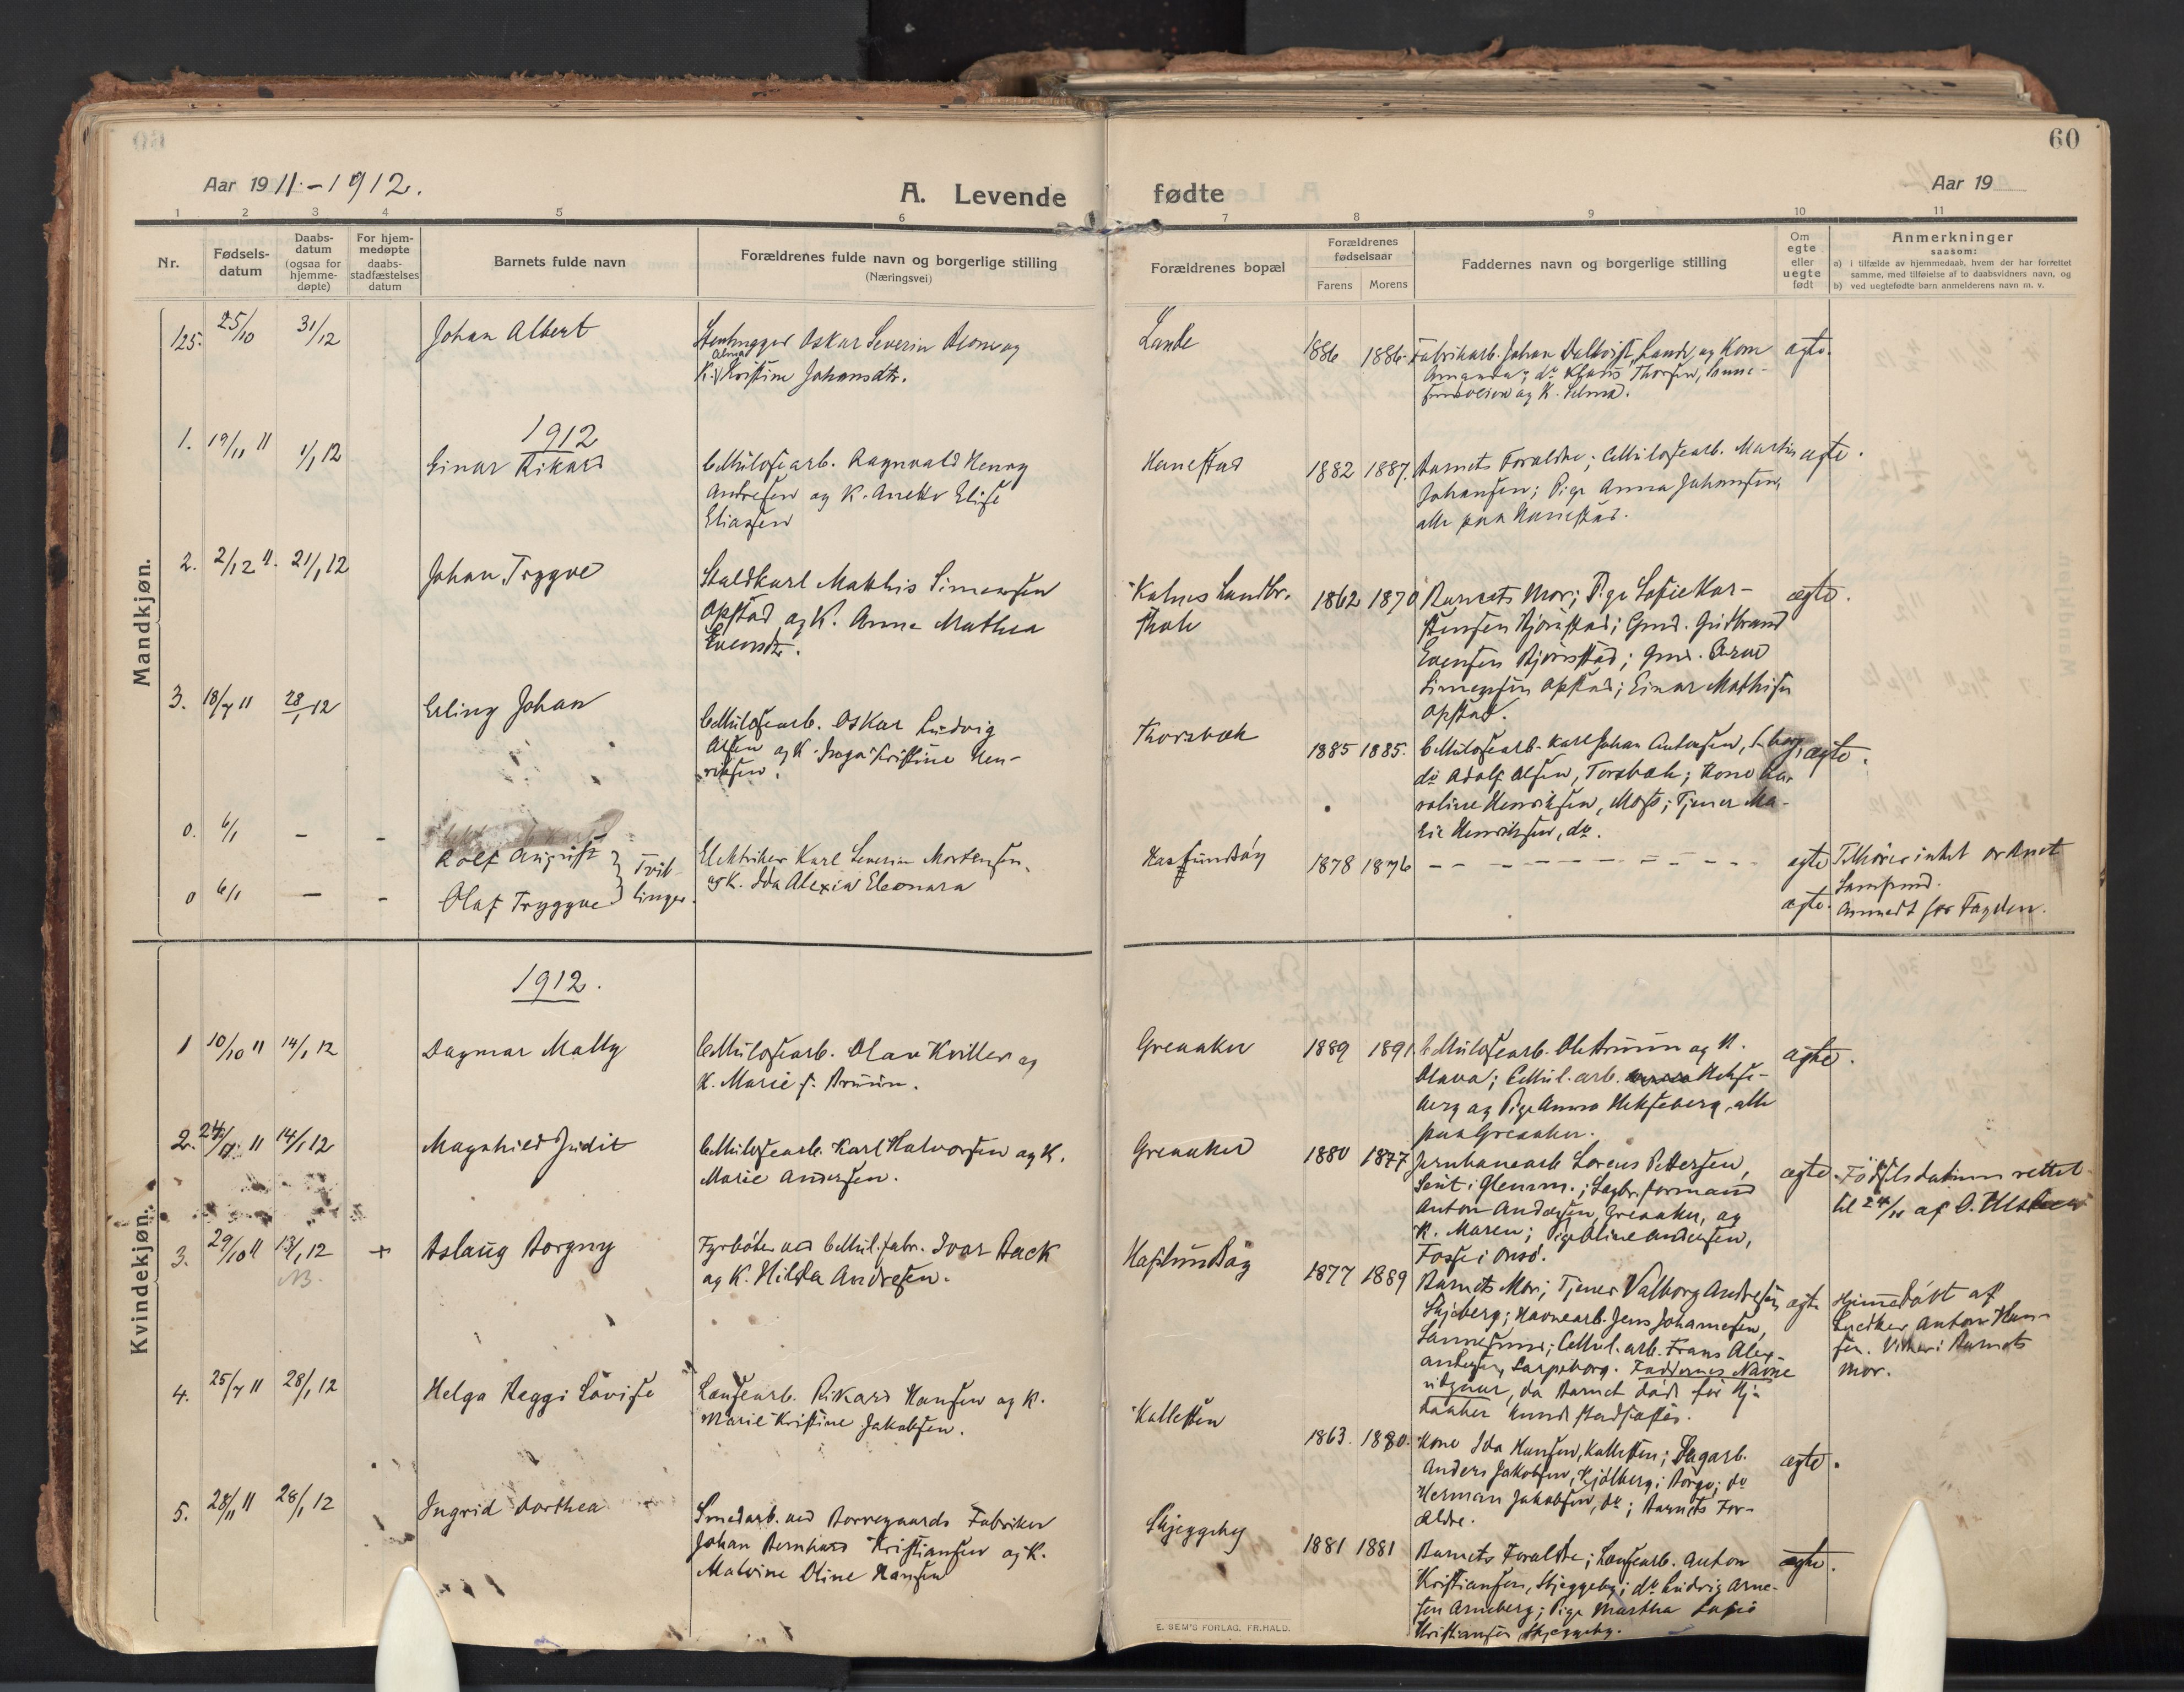 60
Aar 1911.-1912.
A. Levende fødte
Aar 19
1 2 3 4 5 6 7 8 9 10 11
Nr.
Fødsels-
datum
Daabs-
datum
(ogsaa for
hjemme-
døpte)
For hjem-
medøpte
daabs-
stadfæstelses
datum
Barnets fulde navn
Forældrenes fulde navn og borgerlige stilling
(Næringsvei)
Forældrenes bopæl
Forældrenes
fødselsaar
Farens Morens
Faddernes navn og borgerlige stilling
Om
egte
eller
uegte
født
Anmerkninger
saasom:
a) i tilfælde av hjemmedaab, hvem der har forrettet
samme, med tilføielse af to daabsvidners navn, og
b) ved uegtefødte barn anmelderens navn m. v.
Mandkjøn.
125. 25/10 31/12
Johan Albert
Stenhugger Oskar Severin
Alma
K. Kristine Johansdtr.
Lande
1886 1886
Fabrikarb. Johan Dalkvist, Lande, og Kone
Amanda; do Thorsen,
og K. Selma.
ægte.
1912
1. 19/11 11 1/1 12
Einar Rikard
Cellulosearb. Ragnvald Henry
Andresen og K. Anette Elise
Eliasen
Hanestad
1882 1887.
Barnets Forældre; Cellulosearb. Martin
Johansen; Pige Anna Johansen,
alle paa Hanestad.
ægte.
2. 2/12 11. 21/1 12
Johan Trygve
Staldkarl Mathis Simensen
Opstad og K. Anne Mathea
Evensdtr.
Kalnes Landbr.
skole
1862 1870
Barnets Mor; Pige Sofie Kar-
stensen Bjørnstad; Gmd. Gudbrand
Evensen Bjørnstad; Gmd. Arne
Simensen Opstad; Einar Mathisen
Opstad.
ægte.
3. 18/7 11 28/1 12
Erling Johan
Cellulosearb. Oskar Ludvig
Olsen og K. Inga Kristine Hen-
riksen.
Thorsbæk
1885 1885.
Cellulosearb. Karl Johan Antonsen, S.borg,
do Adolf Olsen, Torsbæk; Kone Ka-
roline Henriksen, Moss; Tjener Ma-
rie Henriksen, do.
ægte.
0. 6/1 - -
Rolf August
Tvil-
0 6/1 - -
Olaf Tryggve
linger.
Elektriker Karl Severin Mortensen
og K. Ida Alexia Eleonara
Hafslundsøy
1878 1876
- - - - - - - - - -
ægte
ægte.
Tilhører intet ordnet
Samfund.
Anmeldt for Fogden.
Kvindekjøn.
1912.
1 10/10 11 14/1 12
Dagmar Mally
Cellulosearb. Olav Kviller og
K. Marie f. Bruun.
Greaaker
1889 1891
Cellulosearb. Ole Bruun og K.
Olava; Cellul. arb. Hekse-
berg og Pige Anna Hekseberg, alle
paa Greaaker.
ægte.
2. 24/11 11 14/1 12
Magnhild Judit
Cellulosearb. Karl Halvorsen og K.
Marie Andersen.
Greaaker
1880 1877
Jernbanearb. Lorens Pettersen,
i Glemm.; Sagbr. formand
Anton Andersen, Greaaker, og
K. Maren; Pige Oline Andersen,
Fosse i Onsø.
ægte.
Fødselsdatum rettet
til 24/10 af O.
3. 29/10 11 13/1 12
NB.
+
Aslaug Borgny
Fyrbøter ved Cellul. fabr. Ivar Back
og K. Hilda Andresen.
Hafslundsøy
1877 1889
Barnets Mor; Tjener Valborg Andresen,
Skjeberg; Havnearb. Jens Johannesen,
Sannesund; Cellul. arb. Frans Alex-
andersen, Sarpsborg. Faddernes Navne
utgaar, da Barnet døde før Hj.
daaben kunde stadfæstes.
ægte
Hjemmedøbt af
Snedker Anton Han-
sen. Vitner: Barnets
Mor.
4. 25/7 11 28/1 12
Helga Reggi Lovise
Lossearb. Rikard Hansen og K.
Marie Kristine Jakobsen.
Kallesten
1863. 1880.
Kone Ida Hansen, Kallesten; Sagarb.
Anders Jakobsen, Kjølberg i Borge; do
Herman Jakobsen, do; Barnets For-
ældre.
ægte.
5. 28/11 11 28/1 12
Ingrid Dorthea
Smedarb. ved Borregaards Fabriker
Johan Bernhard Kristiansen og K.
Malvine Oline Hansen
Skjeggeby
1881 1881
Barnets Forældre; Lossearb. Anton
Kristiansen, Skjeggeby; do Ludvig Arne-
sen Arneberg; Pige Martha Sofie
Kristiansen Skjeggeby.
ægte.
E. SEM'S FORLAG, FR.HALD.